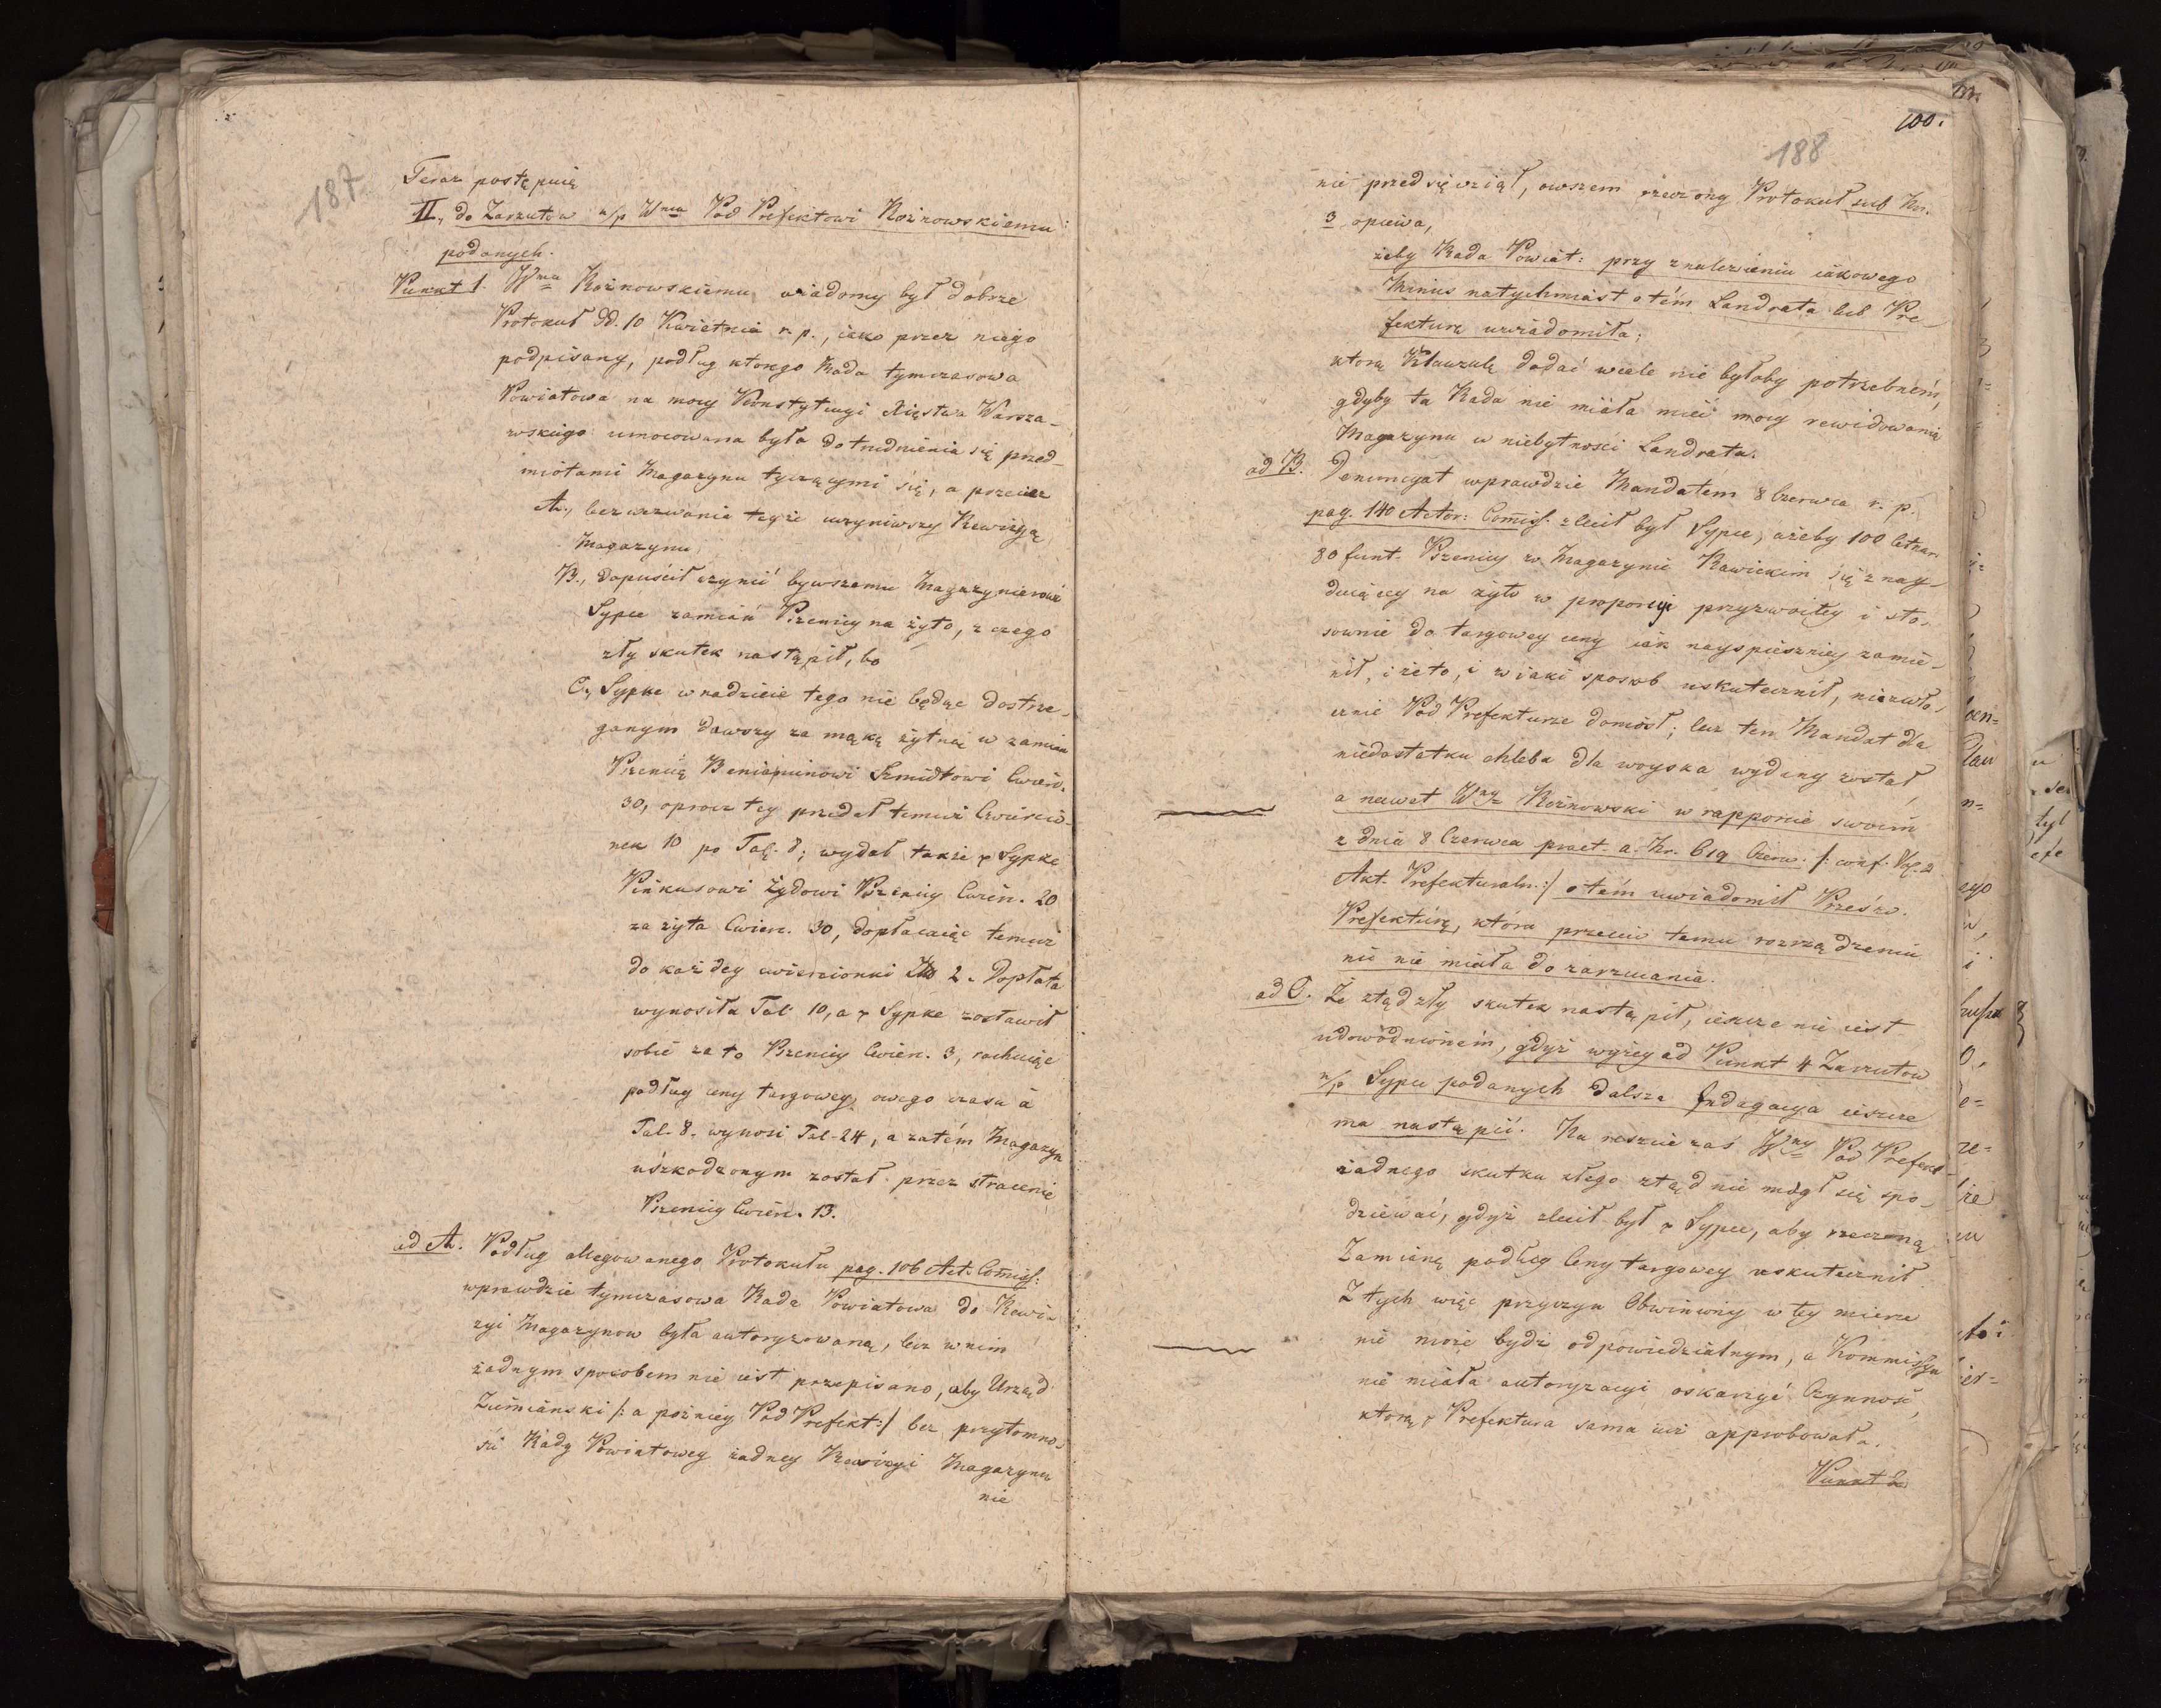 187.
Teraz postępuię
II., do Zarzutow n/p Wmu Pod Prefektowi Rożnowskiemu
podanych.
Punkt 1. Wmu Rożnowskiemu wiadomy był dobrze
Protokuł dd. 10 Kwietnia r. p., iako przez niego
podpisany, podług ktorego Rada tymczasowa
Powiatowa na mocy Konstytucyi Xięstwa Warsza-
wskiego umocowana była do trudnienia się przed-
miotami Magazynu tyczącymi się, a przecież
A., bez wezwania teyże uczyniwszy Rewizyą
Magazynu
B., dopuścił czynić bywszemu Magazynierowi
Sypce zamian Pszenicy na żyto, z czego
zły skutek nastąpił, bo
C., Sypke w nadzieie tego nie będąc dostrze-
ganym dawszy za mąkę żytną w zamian
Pszenicę Beniaminowi Szmidtowi Cwierc.
30, oprocz tey przedał temuż Cwiercio-
nek 10 po Tal. 8; wydał także Sypke
Pinkusowi Żydowi Pszenicy Cwierc. 20
za żyta Cwierc. 30, dopłacaiąc temuż
do każdey cwiercionki 2. Dopłata
wynosiła Tal 10, a Sypke zostawił
sobie za to Pszenicy Cwierc. 3, rachuiąc
podług ceny targowey owego czasu á
Tal. 8. wynosi Tal. 24, a zatém Magazyn
uszkodzonym został przez stracenie
Pszenicy Cwierc. 13.
ad A. Podług allegowanego Protokułu pag. 106 Act. Comiss:
wprawdzie tymczasowa Rada Powiatowa do Rewi-
zyi Magazynow była autoryzowaną, lecz w nim
żadnym sposobem nie iest przepisano, aby Urząd
Ziemianski /: a poźniey Pod Prefekt :/ bez przytomno-
ści Rady Powiatowey żadney Rewizyi Magazynu
nie
100.
188
nie przedsięwziął, owszem rzeczony Protokuł sub Nr.
3 opiewa,
żeby Rada Powiat: przy znalezieniu iakowego
Minus natychmiast o tém Landrata lub Pre-
fekturę uwiadomiła;
ktorą Klauzulę dodać wiele nie byłoby potrzebném,
gdyby ta Rada nie miała mieć mocy rewidowania
Magazynu w niebytności Landrata.
ad B. Denuncyat wprawdzie Mandatem 8 Czerwca r. p.
pag. 140 Actor: Comiss. zlecił był Sypce, ażeby 100 Cetnar.
80 funt. Pszenicy w Magazynie Rawickim się znay-
duiącey na żyto w proporcyi przyzwoitey i sto-
sownie do targowey ceny iak nayspieszniey zamie-
nił, i że to, i w iaki sposob uskutecznił, niezwło-
cznie Pod Prefekturze doniosł; lecz ten Mandat dla
niedostatku chleba dla woyska wydany został,
a nawet Wny Rożnowski w rapporcie swoim
z dnia 8 Czerwca praet. a. Nr. 619 Czerw. /: conf. Vol. 2
Akt. Prefekturaln. :/ o tém uwiadomił Prześw.
Prefekturę, która przeciw temu rozrządzeniu
nic nie miała do zarzucania.
ad C. Że ztąd zły skutek nastąpił, ieszcze nie iest
udowodnioném, gdyż wyżey ad Punkt 4 Zarzutow
n/p Sypce podanych dalsza Indagacya ieszcze
ma nastąpić. Na reszcie zaś Wny Pod Prefekt
żadnego skutku złego ztąd nie mógł się spo-
dziewać, gdyż zlecił był Sypce, aby rzeczoną
Zamianę podług Ceny targowey uskutecznił.
Z tych więc przyczyn Obwiniony w tey mierze
nie może bydź odpowiedzialnym, a Kommissya
nie miała autoryzacyi oskarżyć Czynność,
ktorą Prefektura sama iuż approbowała.
Punkt 2